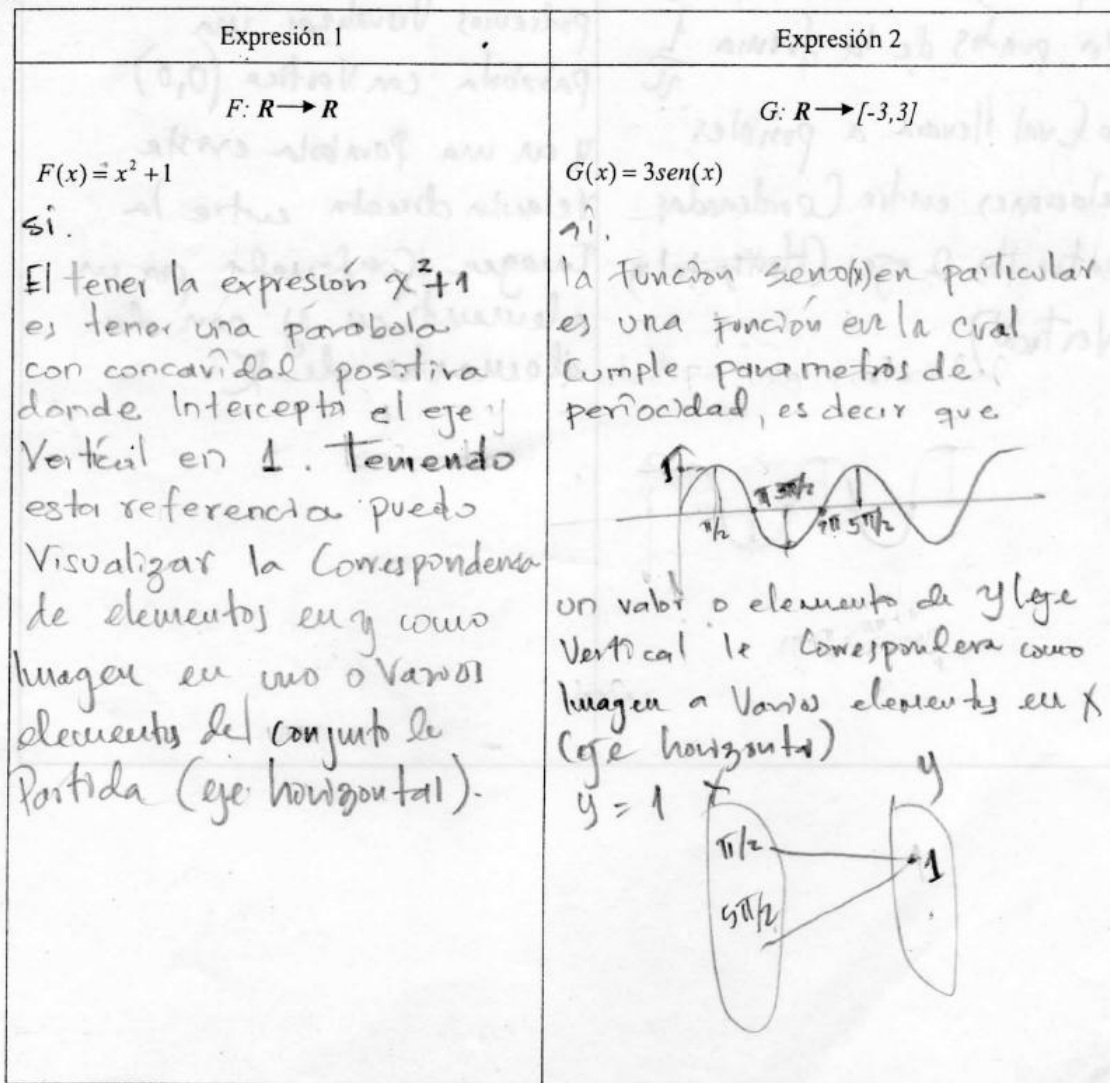 Expresión 1
F: R → R
F(x) = x² + 1
si.
El tener la expresión x² + 1
es tener una parabola
con concavidad positiva
donde intercepta el eje y
Vertical en 1. Teniendo
esta referencia puedo
Visualizar la Correspondencia
de elementos en y como
Imagen en uno o Varios
elementos del conjunto de
Partida (eje horizontal).
Expresión 2
G: R → [-3,3]
G(x) = 3sen(x)
si.
la función seno(x) en particular
es una función en la cual
Cumple parametros de
periocidad, es decir que
1 π/2 π 3π/2 2π 5π/2
un valor o elemento de y (eje
Vertical le Correspondera como
Imagen a Varios elementos en X
(eje horizontal)
y = 1
x y
π/2 1
5π/2